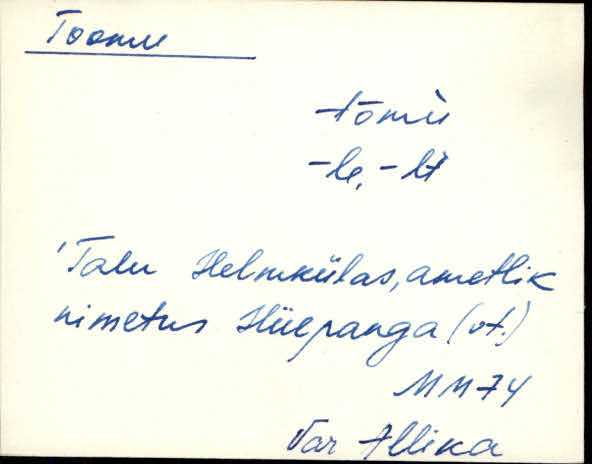 Toomu
tōmù
-le, -lt
'Talu Helmkülas, ametlik
nimetus Hüepanga (vt.)
MM74
Var Allika